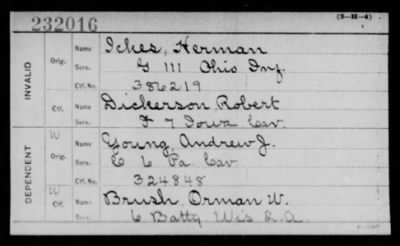 232016
(3-H-4)
INVALID
Orig.
Name Ickes, Herman
Serv. G 111 Ohio Inf.
Ctf. No. 386219
Ctf.
Name Dickerson, Robert
Serv. F 7 Iowa Cav.
DEPENDENT
W Orig.
Name Young, Andrew J.
Serv. C 6 Pa. Cav.
Ctf. No. 324848
W Ctf.
Name Brush, Orman W.
Serv. 6 Batty. Wis L.A.